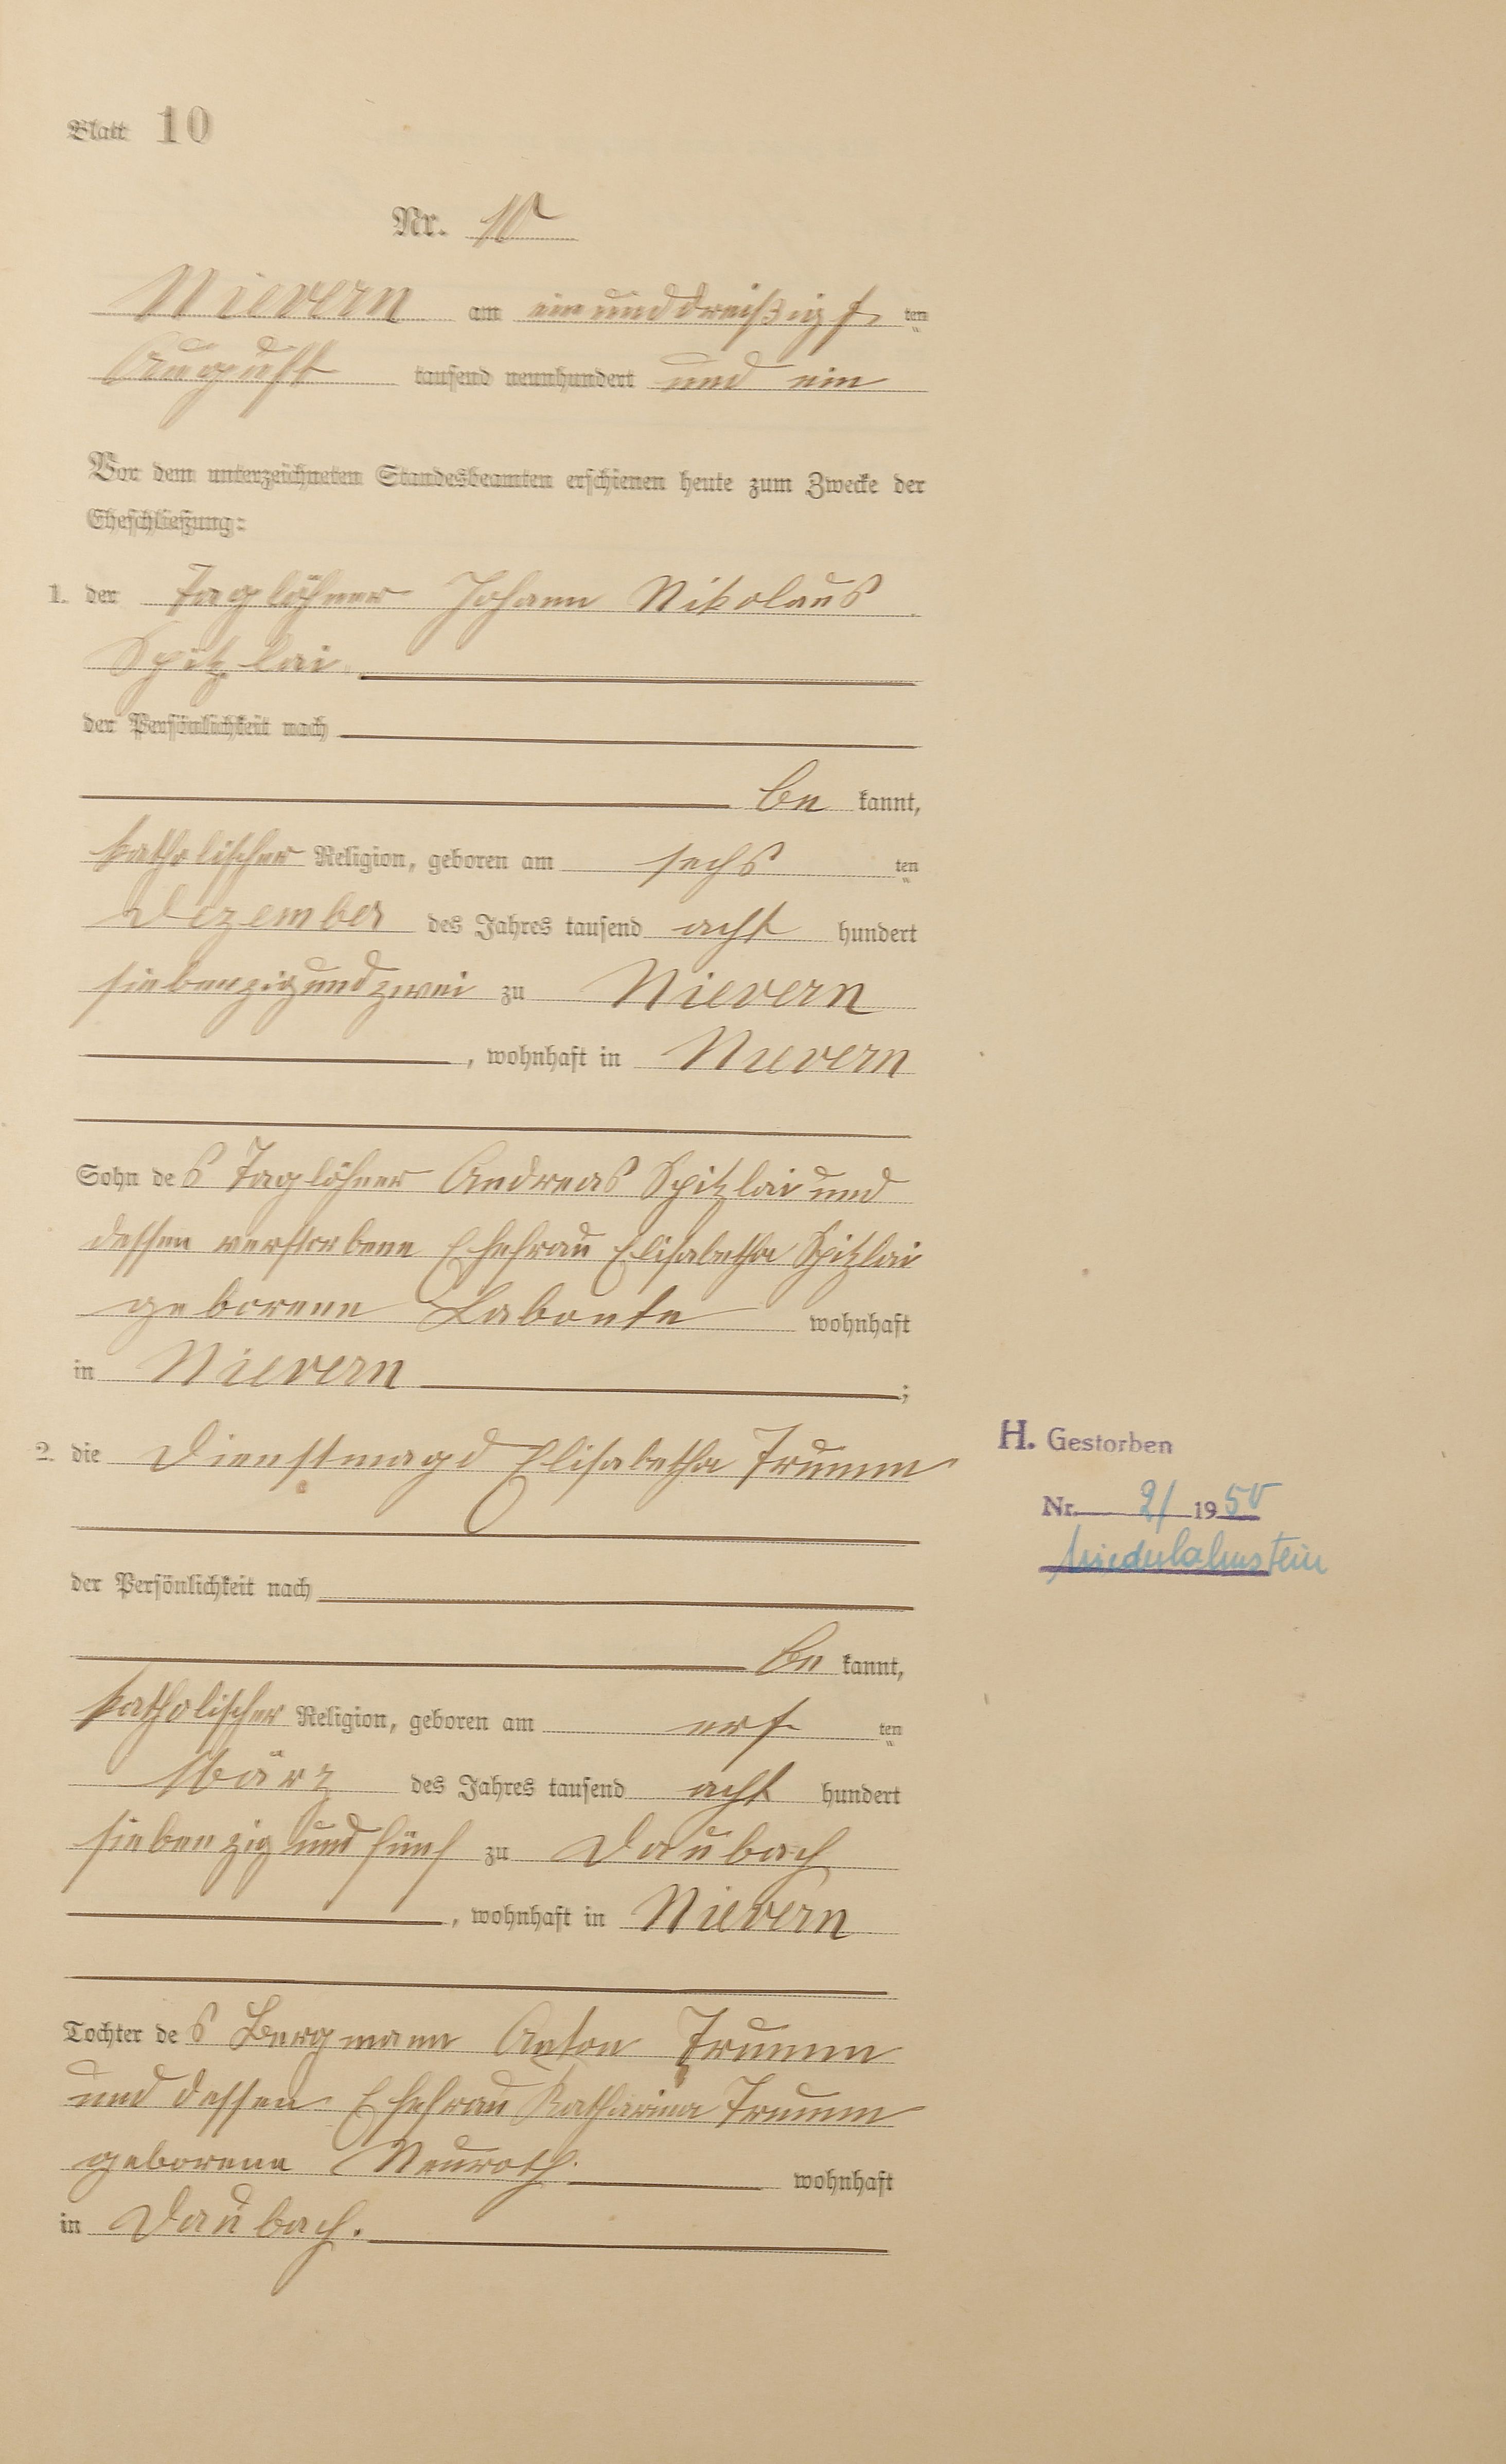 Blatt 10
Nr. 10
Nievern am einunddreißigs ten
August tausend neunhundert und ein
Vor dem unterzeichneten Standesbeamten erschienen heute zum Zwecke der
Eheschließung:
1. der Taglöhner Johann Nikolaus
Spitzlai
der Persönlichkeit nach
be kannt,
katholischer Religion, geboren am sechs ten
Dezember des Jahres tausend acht hundert
siebenzigundzwei zu Nievern
, wohnhaft in Nievern
Sohn des Taglöhner Andreas Spitzlai und
dessen verstorbene Ehefrau Elisabetha Spitzlai
geborene Labonte wohnhaft
in Nievern ;
2. die Dienstmagd Elisabetha Trumm
der Persönlichkeit nach
be kannt,
katholischer Religion, geboren am ers ten
März des Jahres tausend acht hundert
siebenzig und fünf zu Daubach
, wohnhaft in Nievern
Tochter des Bergmann Anton Trumm
und dessen Ehefrau Katharina Trumm
geborene Neuroth. wohnhaft
in Daubach.
H. Gestorben
Nr. 21 1950
Niederlahnstein